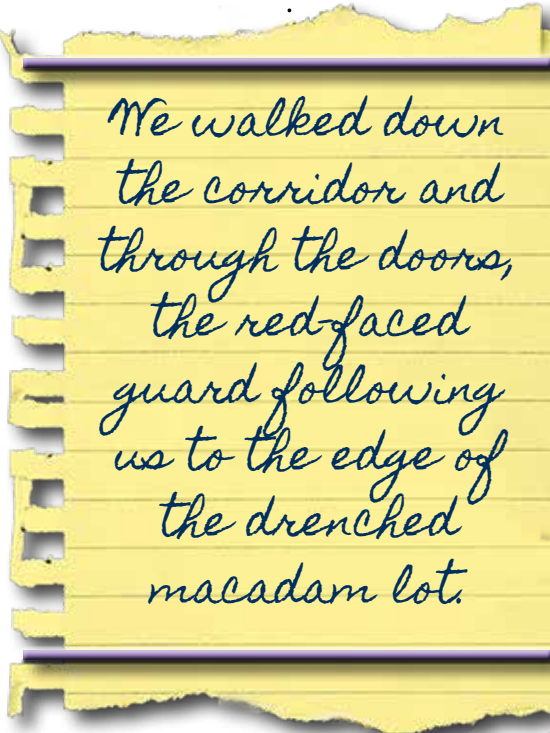 We walked down
the corridor and
through the doors,
the red-faced
guard following
us to the edge of
the drenched
macadam lot.